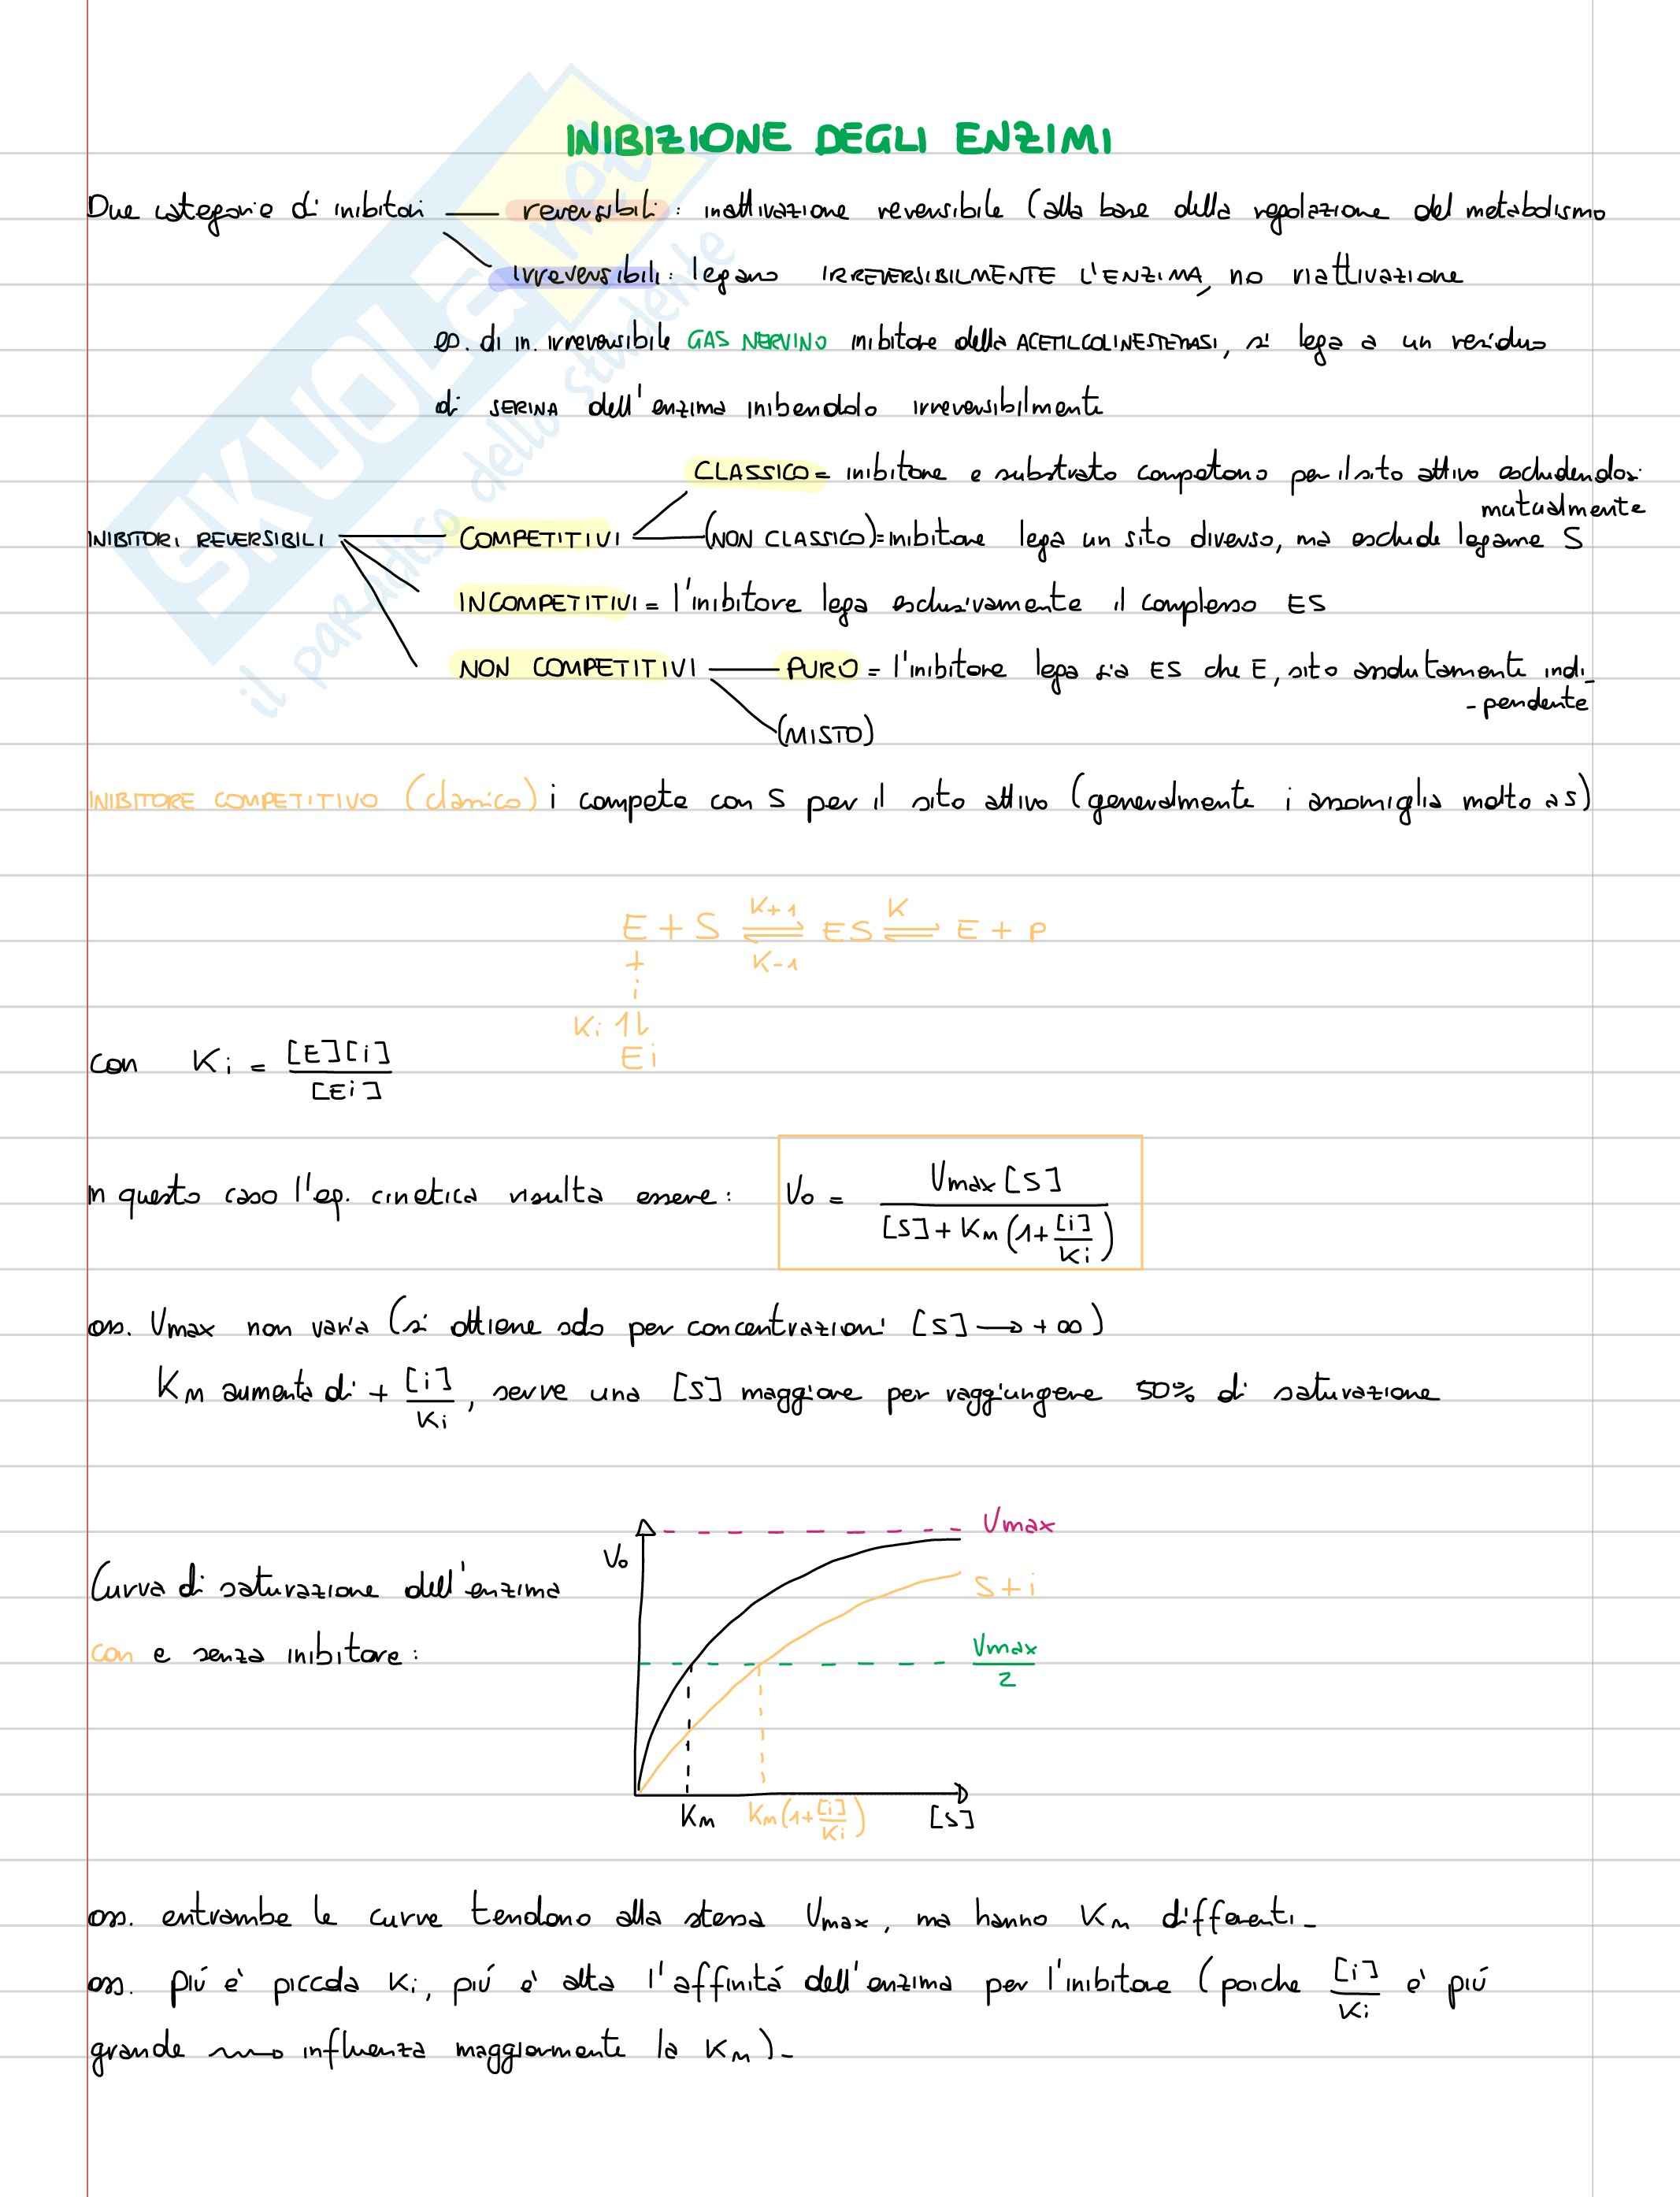 INIBIZIONE DEGLI ENZIMI
Due categorie di inibitori — reversibili: inattivazione reversibile (alla base della regolazione del metabolismo
irreversibili: legano IRREVERSIBILMENTE L'ENZIMA, no riattivazione
es. di in. irreversibile GAS NERVINO inibitore della ACETILCOLINESTERASI, si lega a un residuo
di SERINA dell'enzima inibendolo irreversibilmente
CLASSICO = inibitore e substrato competono per il sito attivo escludendosi
mutualmente
INIBITORI REVERSIBILI — COMPETITIVI — (NON CLASSICO) = inibitore lega un sito diverso, ma esclude legame S
INCOMPETITIVI = l'inibitore lega esclusivamente il complesso ES
NON COMPETITIVI — PURO = l'inibitore lega sia ES che E, sito assolutamente indi-
-pendente
(MISTO)
INIBITORE COMPETITIVO (classico) i compete con S per il sito attivo (generalmente i assomiglia molto a S)
K+1 K
E + S ⇌ ES ⇌ E + P
+ K-1
i
Ki ⥮
Ei
con Ki = [E][i] / [Ei]
In questo caso l'eq. cinetica risulta essere: V₀ = Vmax [S] / [S] + KM (1 + [i]/Ki)
oss. Vmax non varia (si ottiene solo per concentrazioni [S] → +∞)
KM aumenta di + [i]/Ki, serve una [S] maggiore per raggiungere 50% di saturazione
Vmax
V₀
S+i
Curva di saturazione dell'enzima
con e senza inibitore:
Vmax/2
KM KM(1+[i]/Ki) [S]
oss. entrambe le curve tendono alla stessa Vmax, ma hanno KM differenti_
oss. piú è piccola Ki, piú è alta l'affinitá dell'enzima per l'inibitore (poiche [i]/Ki è piú
grande ⟿ influenza maggiormente la KM)_
SKUOLA.net
il paradiso dello studente